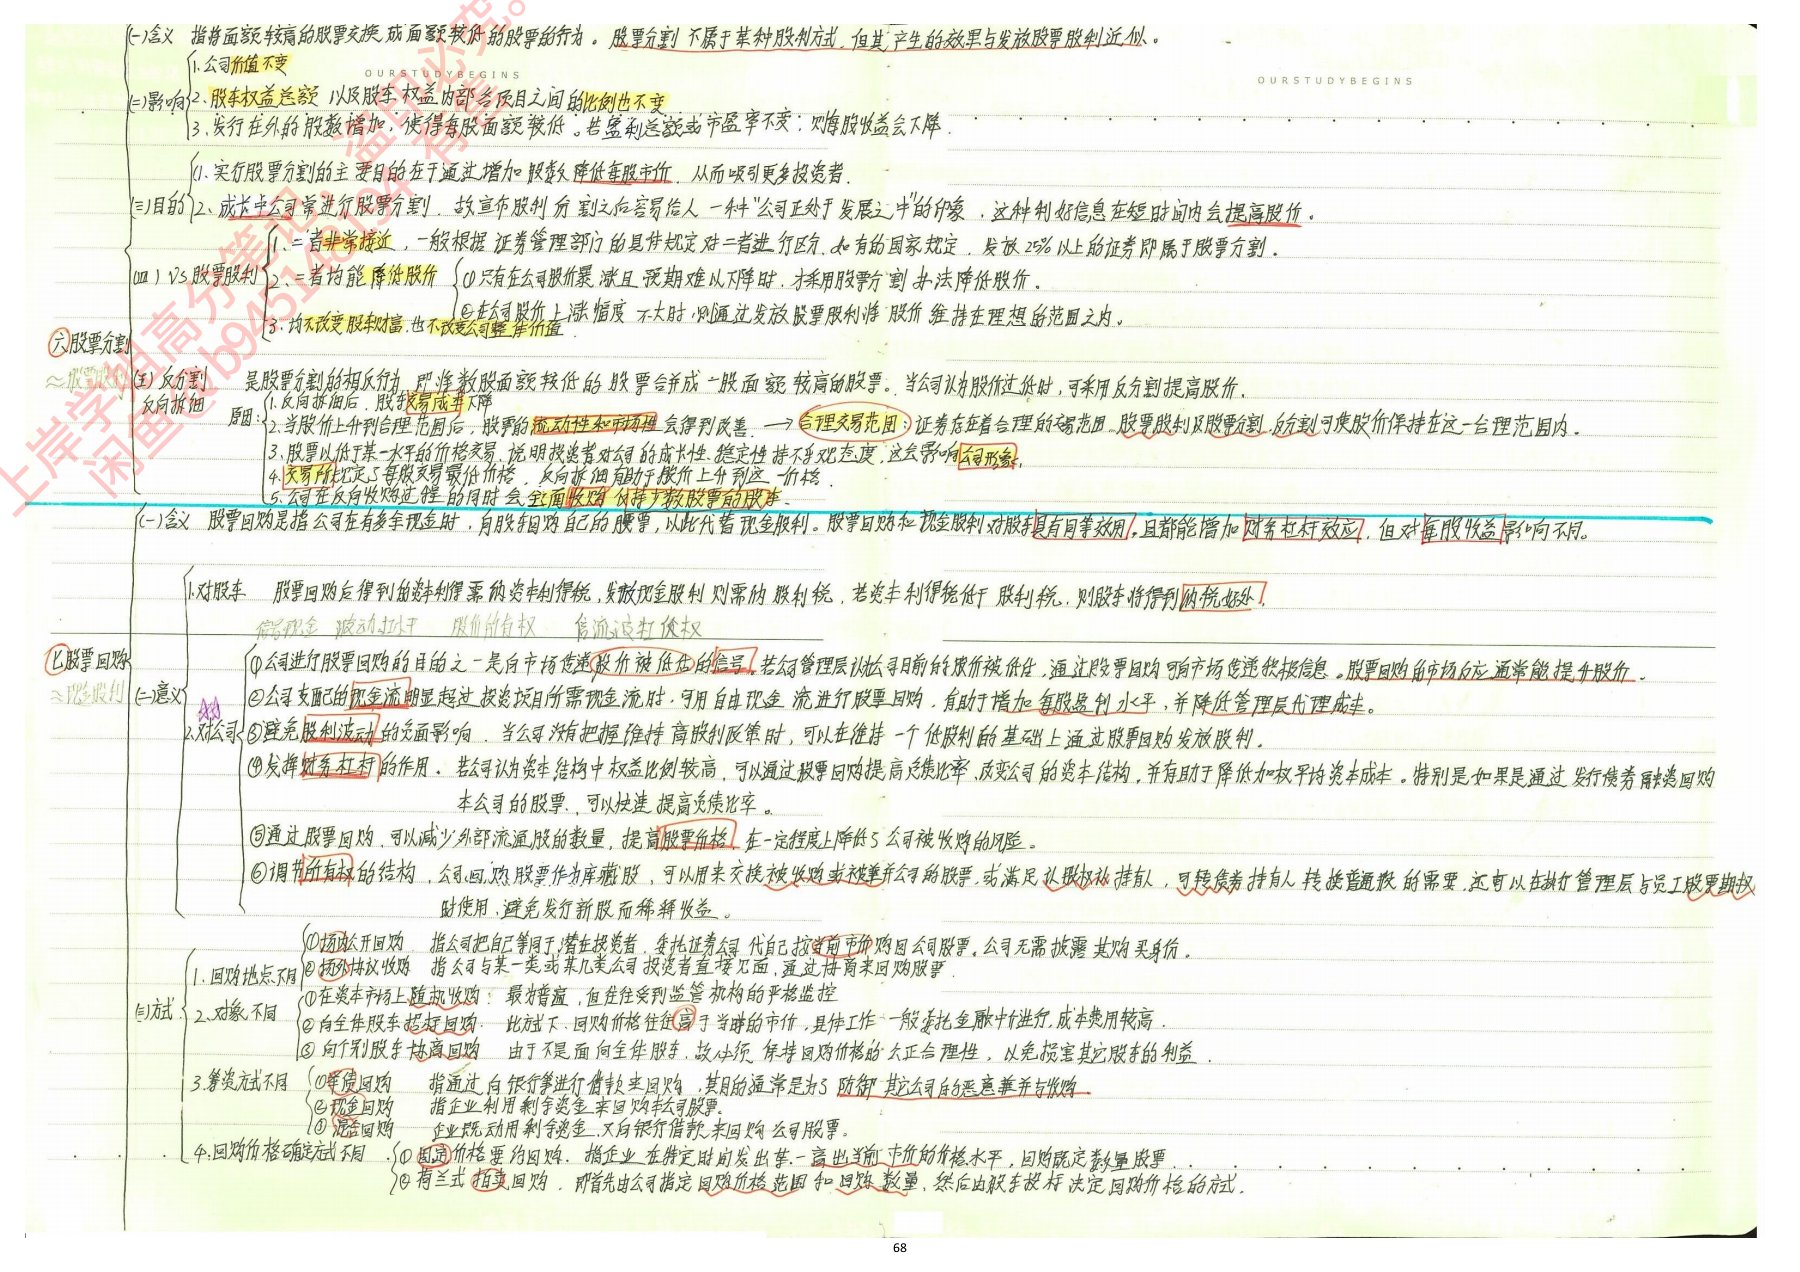 (一)含义 指将面额较高的股票交换成面额较低的股票的行为。股票分割不属于某种股利方式,但其产生的效果与发放股票股利近似。
1.公司价值不变
OURSTUDYBEGINS
OURSTUDYBEGINS
(二)影响 2.股东权益总额 以及股东权益内部各项目之间的比例也不变
3.发行在外的股数增加,使得每股面额较低。若盈利总额或市盈率不变;则每股收益会下降.
1.实行股票分割的主要目的在于通过增加股数降低每股市价,从而吸引更多投资者.
(三)目的 2.成长中公司常进行股票分割,故宣布股利分割之后容易给人一种"公司正处于发展之中"的印象,这种利好信息在短时间内会提高股价。
1.二者非常接近,一般根据证券管理部门的具体规定对二者进行区分,如有的国家规定,发放25%以上的证券即属于股票分割.
(四)VS股票股利 2.二者均能降低股价 ①只有在公司股价暴涨且预期难以下降时,才采用股票分割办法降低股价.
②在公司股价上涨幅度不大时,则通过发放股票股利将股价维持在理想的范围之内.
3.均不改变股东财富,也不改变公司整体价值
六股票分割
≈股票股利
(五)反分割 是股票分割的相反行为,即将数股面额较低的股票合并成一股面额较高的股票。当公司认为股价过低时,可采用反分割提高股价.
反向拆细
原因:1.反向拆细后,股东交易成本下降
2.当股价上升到合理范围后,股票的流动性和市场性会得到改善 → 合理交易范围:证券存在着合理的交易范围,股票股利及股票分割、反分割可使股价保持在这一合理范围内.
3.股票以低于某一水平的价格交易,说明投资者对公司的成长性、稳定性持不乐观态度,这会影响公司形象.
4.交易所规定了每股交易最低价格,反向拆细有助于股价上升到这一价格.
5.公司在反向收购过程的同时会全面收购仅持少数股票的股东.
(一)含义 股票回购是指公司在有多余现金时,向股东回购自己的股票,以此代替现金股利。股票回购和现金股利对股东具有同等效用,且都能增加财务杠杆效应,但对每股收益影响不同。
1.对股东 股票回购后得到的资本利得需纳资本利得税,发放现金股利则需纳股利税,若资本利得税低于股利税,则股东将得到纳税好处.
信号现金 波动杠杆 股价所有权
七股票回购
≈现金股利
(二)意义
2.对公司
①公司进行股票回购的目的之一是向市场传递股价被低估的信号.若公司管理层认为公司目前的股价被低估,通过股票回购可向市场传递积极信息。股票回购的市场反应通常能提升股价.
②公司支配的现金流明显超过投资项目所需现金流时,可用自由现金流进行股票回购,有助于增加每股盈利水平,并降低管理层代理成本.
③避免股利波动的负面影响.当公司没有把握维持高股利政策时,可以在维持一个低股利的基础上通过股票回购发放股利.
④发挥财务杠杆的作用.若公司认为资本结构中权益比例较高,可以通过股票回购提高负债比率,改变公司的资本结构,并有助于降低加权平均资本成本。特别是如果是通过发行债券融资回购
本公司的股票,可以快速提高负债比率。
⑤通过股票回购,可以减少外部流通股的数量,提高股票价格,在一定程度上降低了公司被收购的风险。
⑥调节所有权的结构,公司回购股票作为库藏股,可以用来交换被收购或被兼并公司的股票,或满足认股权认持有人,可转债券持有人转换普通股的需要,还可以在执行管理层与员工股票期权
时使用,避免发行新股而稀释收益。
(三)方式
1.回购地点不同
①场内公开回购 指公司把自己等同于潜在投资者,委托证券公司代自己按当前市价购回公司股票.公司无需披露其购买身份.
②场外协议收购 指公司与某一类或某几类公司投资者直接见面,通过协商来回购股票
2.对象不同
①在资本市场上随机收购:最为普遍,但往往受到监管机构的严格监控
②向全体股东招标回购.此方式下,回购价格往往高于当时的市价,具体工作一般委托金融中介进行,成本费用较高.
③向个别股东协商回购 由于不是面向全体股东,故必须保持回购价格的公正合理性,以免损害其它股东的利益.
3.筹资方式不同 ①举债回购 指通过向银行等进行借款来回购,其目的通常是为了防御其它公司的恶意兼并与收购.
②现金回购 指企业利用剩余资金来回购本公司股票.
③混合回购 企业既动用剩余资金,又向银行借款来回购公司股票。
4.回购价格确定方式不同 ①固定价格要约回购.指企业在特定时间发出某一高出当前市价的价格水平,回购既定数量股票.
②荷兰式拍卖回购.即首先由公司指定回购价格范围和回购数量,然后由股东投标决定回购价格的方式.
上岸学姐高分笔记 盗印必究。
68